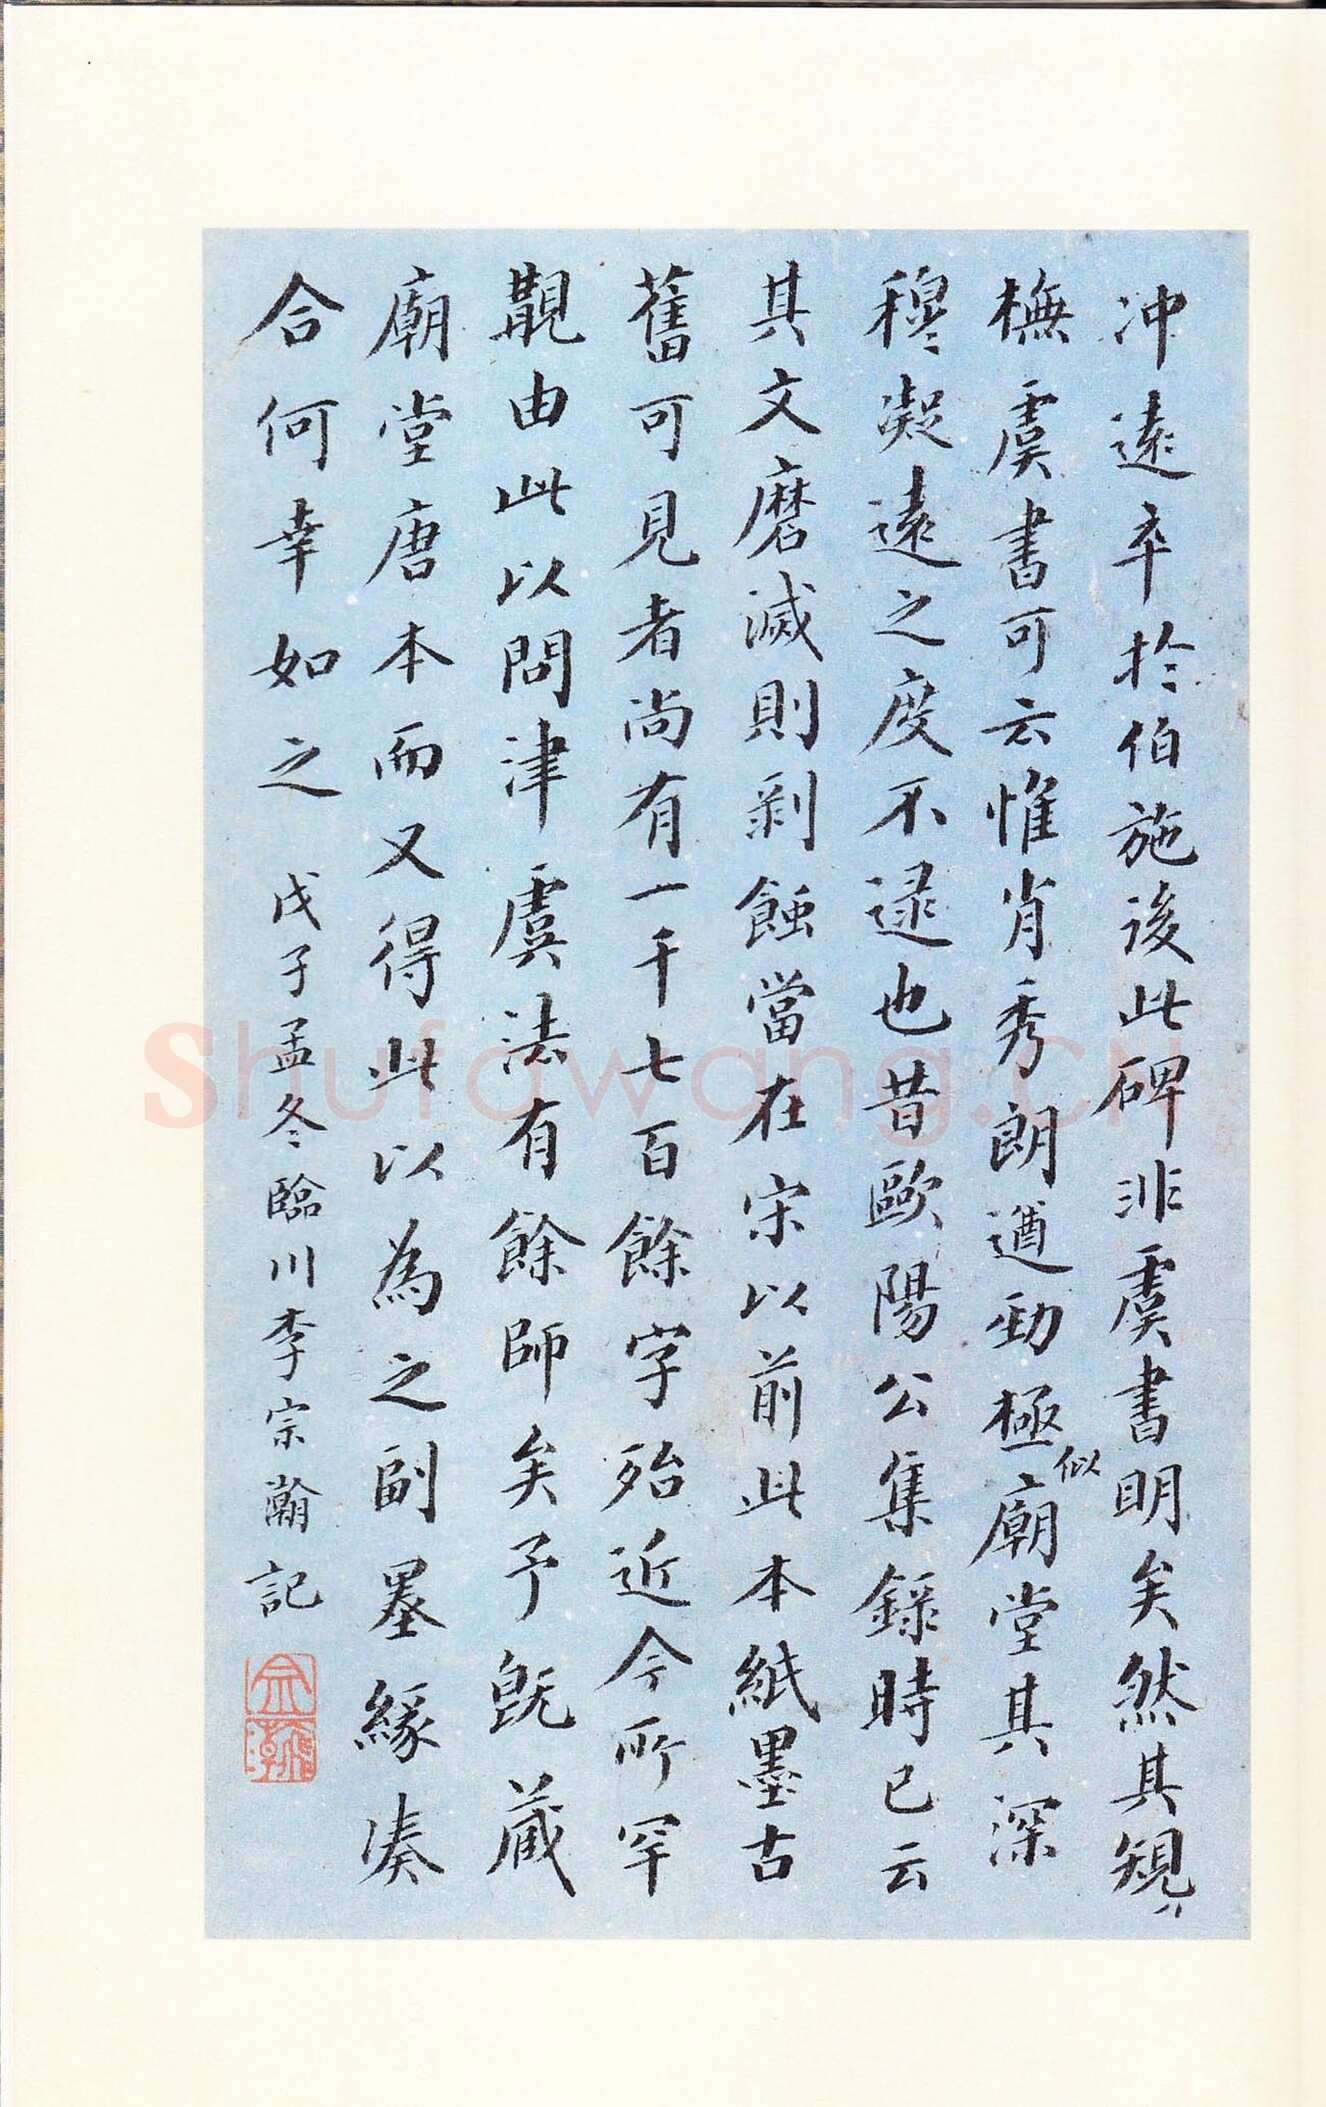 冲遠卒於伯施後此碑非虞書明矣然其規
橅虞書可云惟肖秀朗遒勁極似廟堂其深
穆凝遠之度不逮也昔歐陽公集錄時已云
其文磨滅則剥蝕當在宋以前此本紙墨古
舊可見者尚有一千七百餘字殆近今所罕
覯由此以問津虞法有餘師矣予既蔵
廟堂唐本而又得此以為之副墨緣湊
合何幸如之 戊子孟冬臨川李宗瀚記
宗瀚
Shufawang.cn